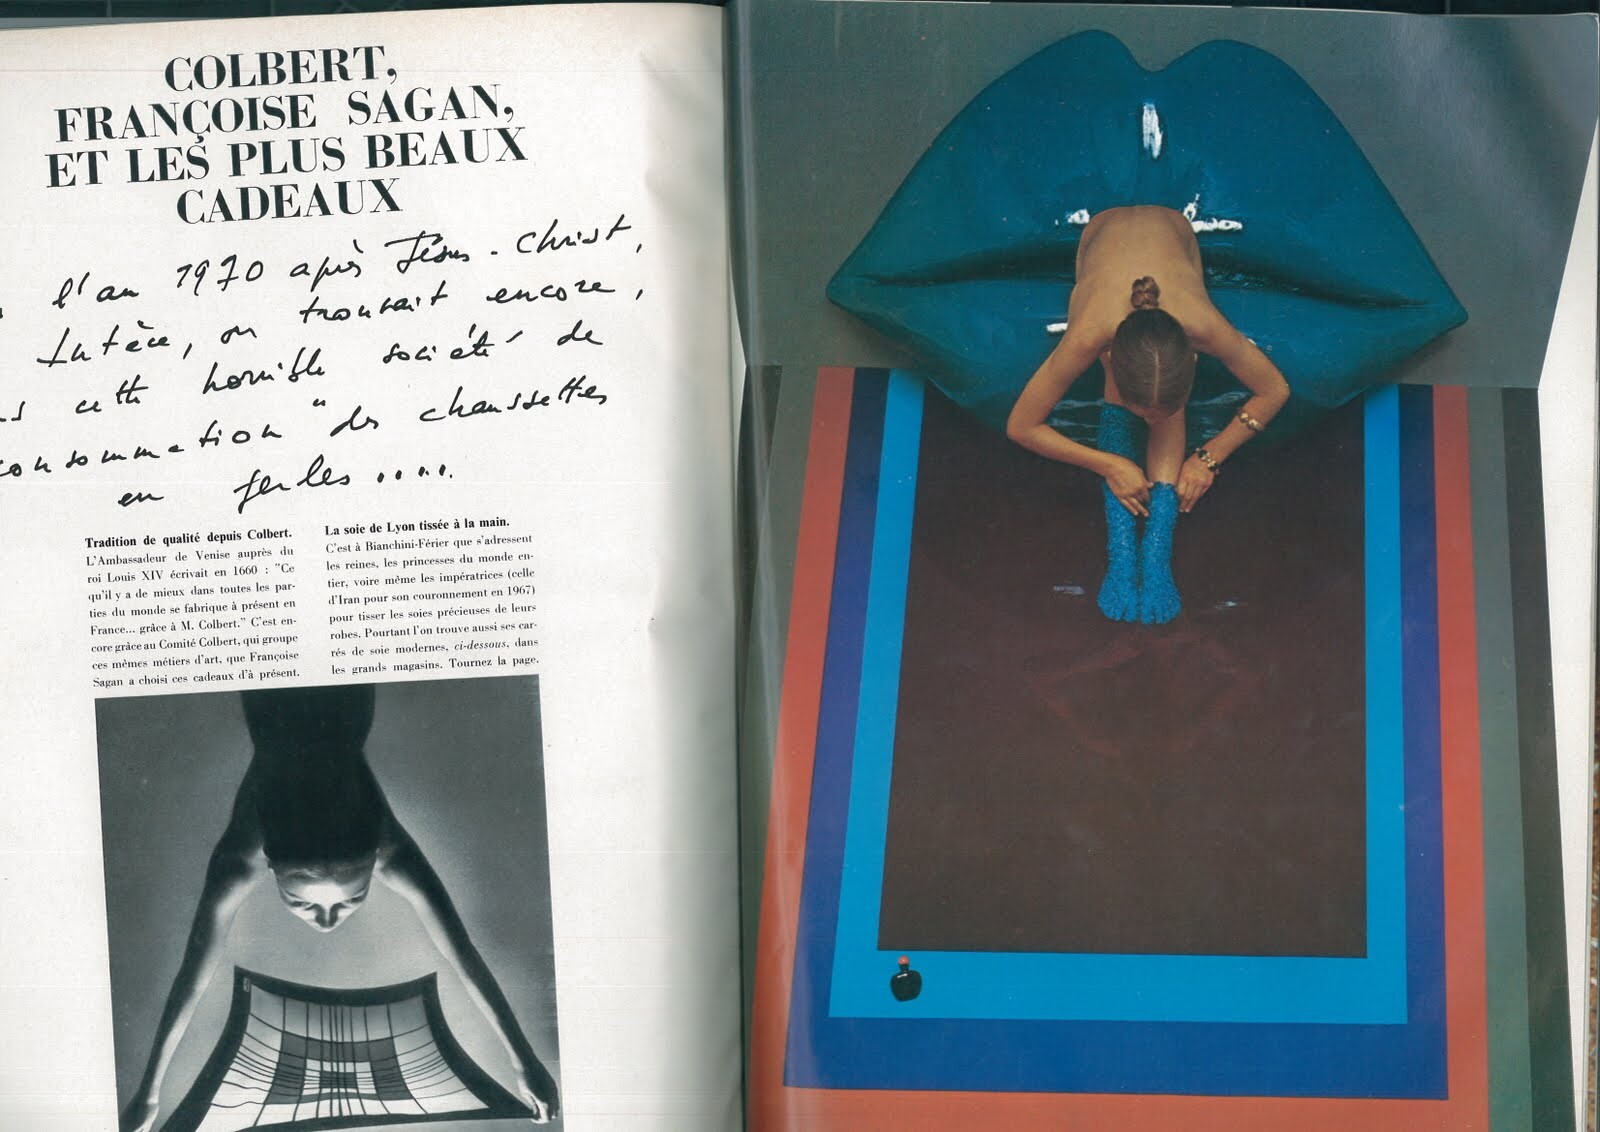 COLBERT,
FRANÇOISE SAGAN,
ET LES PLUS BEAUX
CADEAUX
l'an 1970 après Jésus-Christ,
Lutèce, on trouvait encore,
cette horrible société de
consommation "des chaussettes
en perles .....
Tradition de qualité depuis Colbert.
L'Ambassadeur de Venise auprès du
roi Louis XIV écrivait en 1660 : "Ce
qu'il y a de mieux dans toutes les par-
ties du monde se fabrique à présent en
France... grâce à M. Colbert." C'est en-
core grâce au Comité Colbert, qui groupe
ces mêmes métiers d'art, que Françoise
Sagan a choisi ces cadeaux d'à présent.
La soie de Lyon tissée à la main.
C'est à Bianchini-Férier que s'adressent
les reines, les princesses du monde en-
tier, voire même les impératrices (celle
d'Iran pour son couronnement en 1967)
pour tisser les soies précieuses de leurs
robes. Pourtant l'on trouve aussi ses car-
rés de soie modernes, ci-dessous, dans
les grands magasins. Tournez la page.